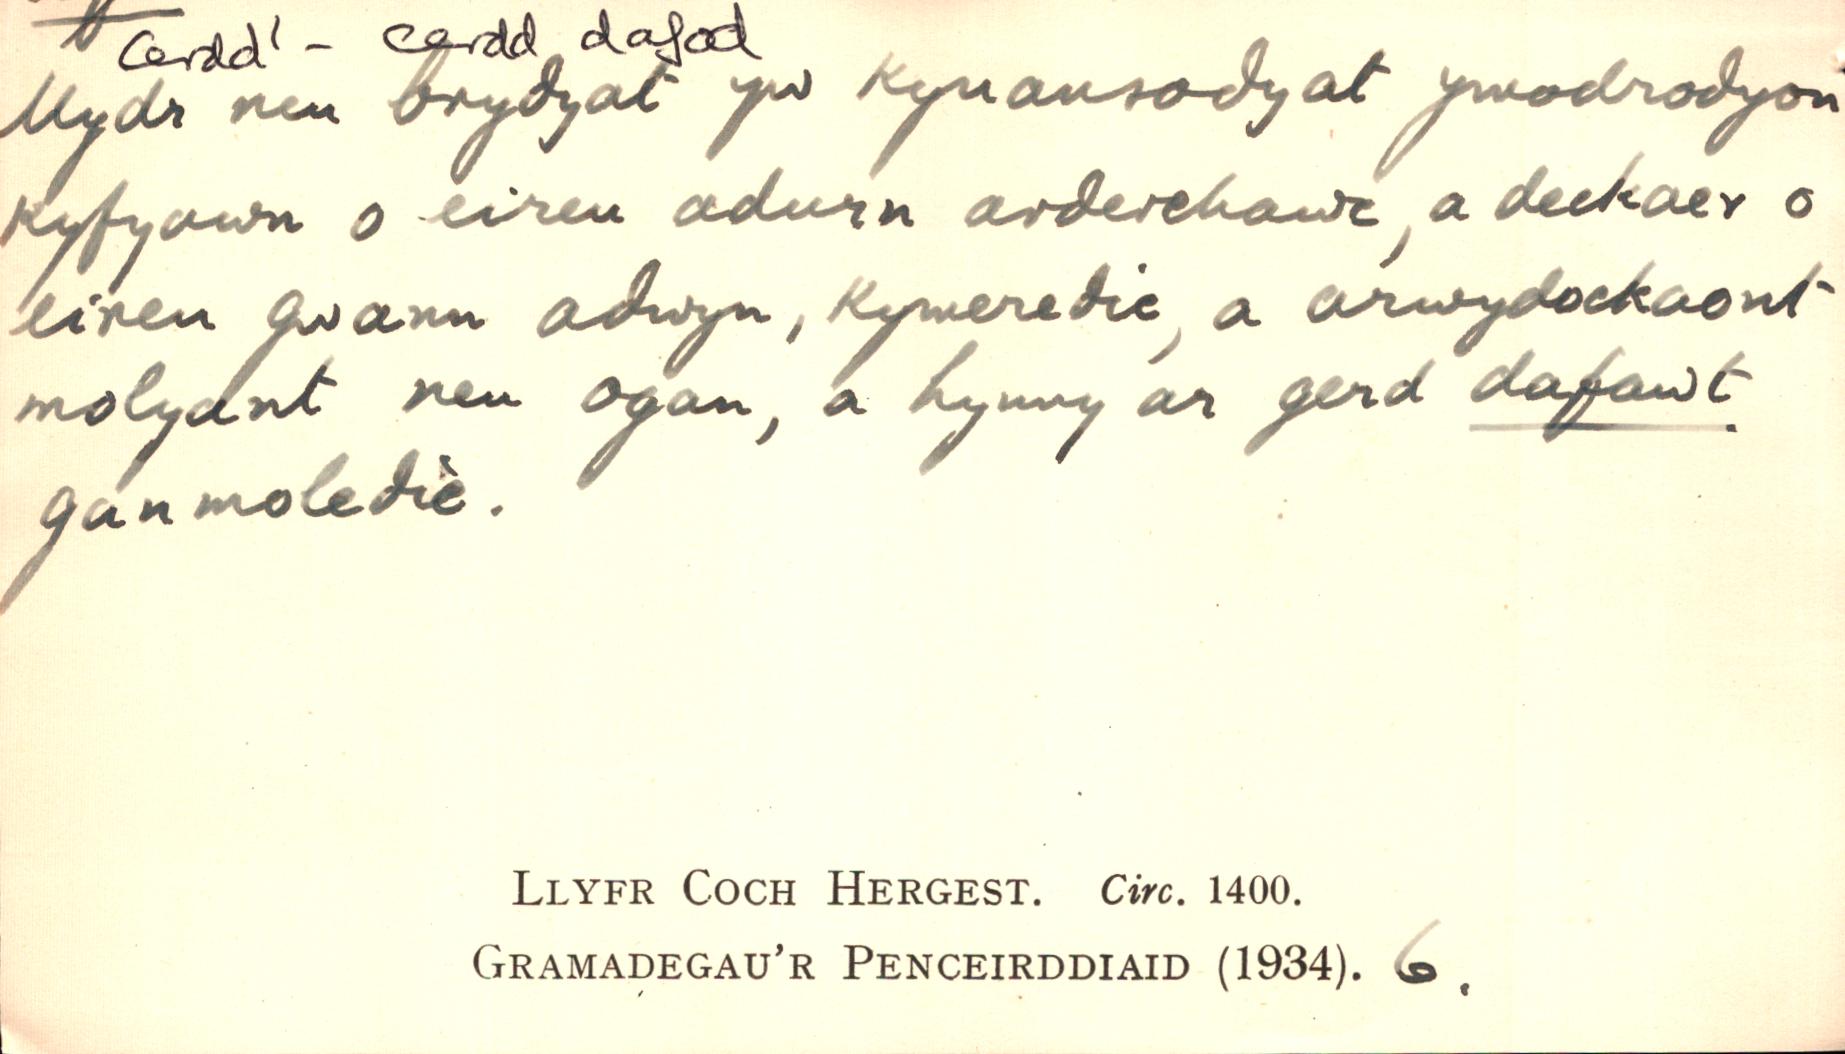 Cerdd¹ - cerdd dafod
Mydr neu brydyat yw kynansodyat ymodrodyon
kyfyawn o eireu adurn arderchawc, a deckaer o
eireu gwann adwyn, kymeredic, a arwydockaont
molyant neu ogan, a hynny ar gerd dafawt
ganmoledic.
LLYFR COCH HERGEST. Circ. 1400.
GRAMADEGAU'R PENCEIRDDIAID (1934). 6.